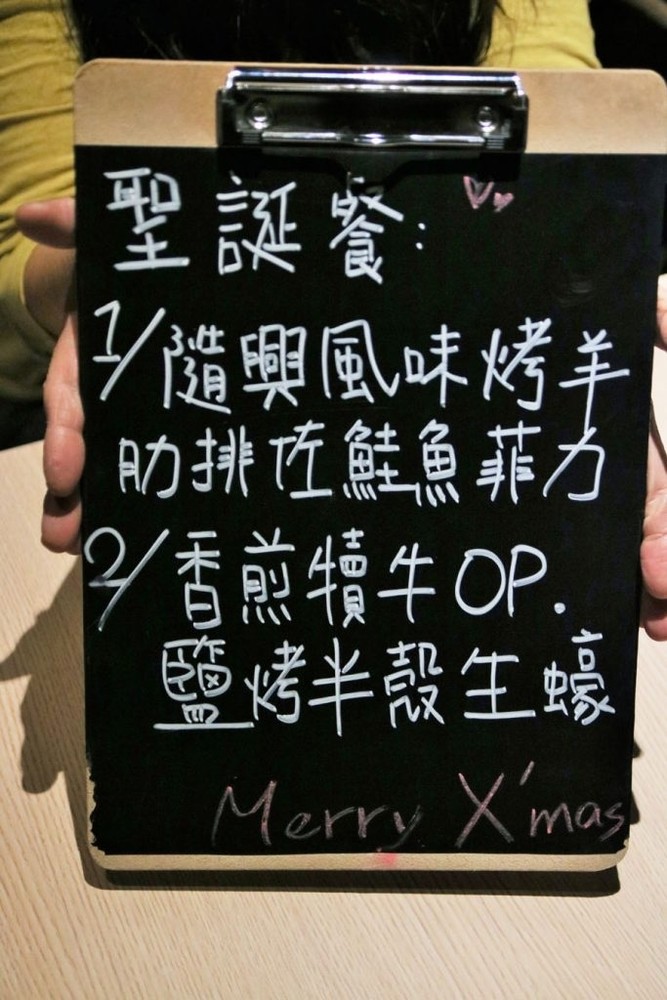 聖誕餐:
1/隨興風味烤羊
肋排佐鮭魚菲力
2/香煎犢牛OP.
鹽烤半殼生蠔
Merry X'mas